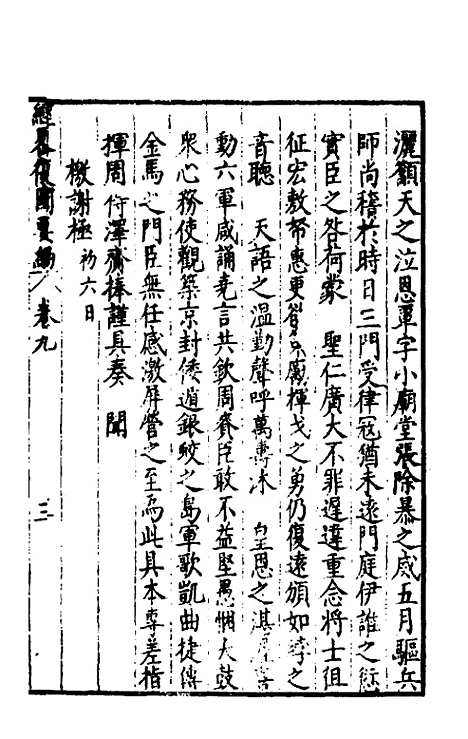 灑籲天之泣恩覃字小廟堂張除暴之威五月驅兵
師尚稽於時日三門受律寇猶未遠門庭伊誰之愆
實臣之咎荷蒙　聖仁廣大不罪遲違重念將士徂
征宏敷帑惠更督勵揮戈之勇仍復遠頒如綸之
音聽　天語之温勤聲呼萬壽沐　皇恩之湛
動六軍咸誦堯言共飲周賚臣敢不益堅愚悃大鼓
衆心務使觀築京封倭遁銀蛟之島軍歌凱曲捷傳
金馬之門臣無任感激屏營之至爲此具本專差指
揮周侍澤齎捧謹具奏　聞
檄謝極　初六日
經畧復國要編　卷九　三